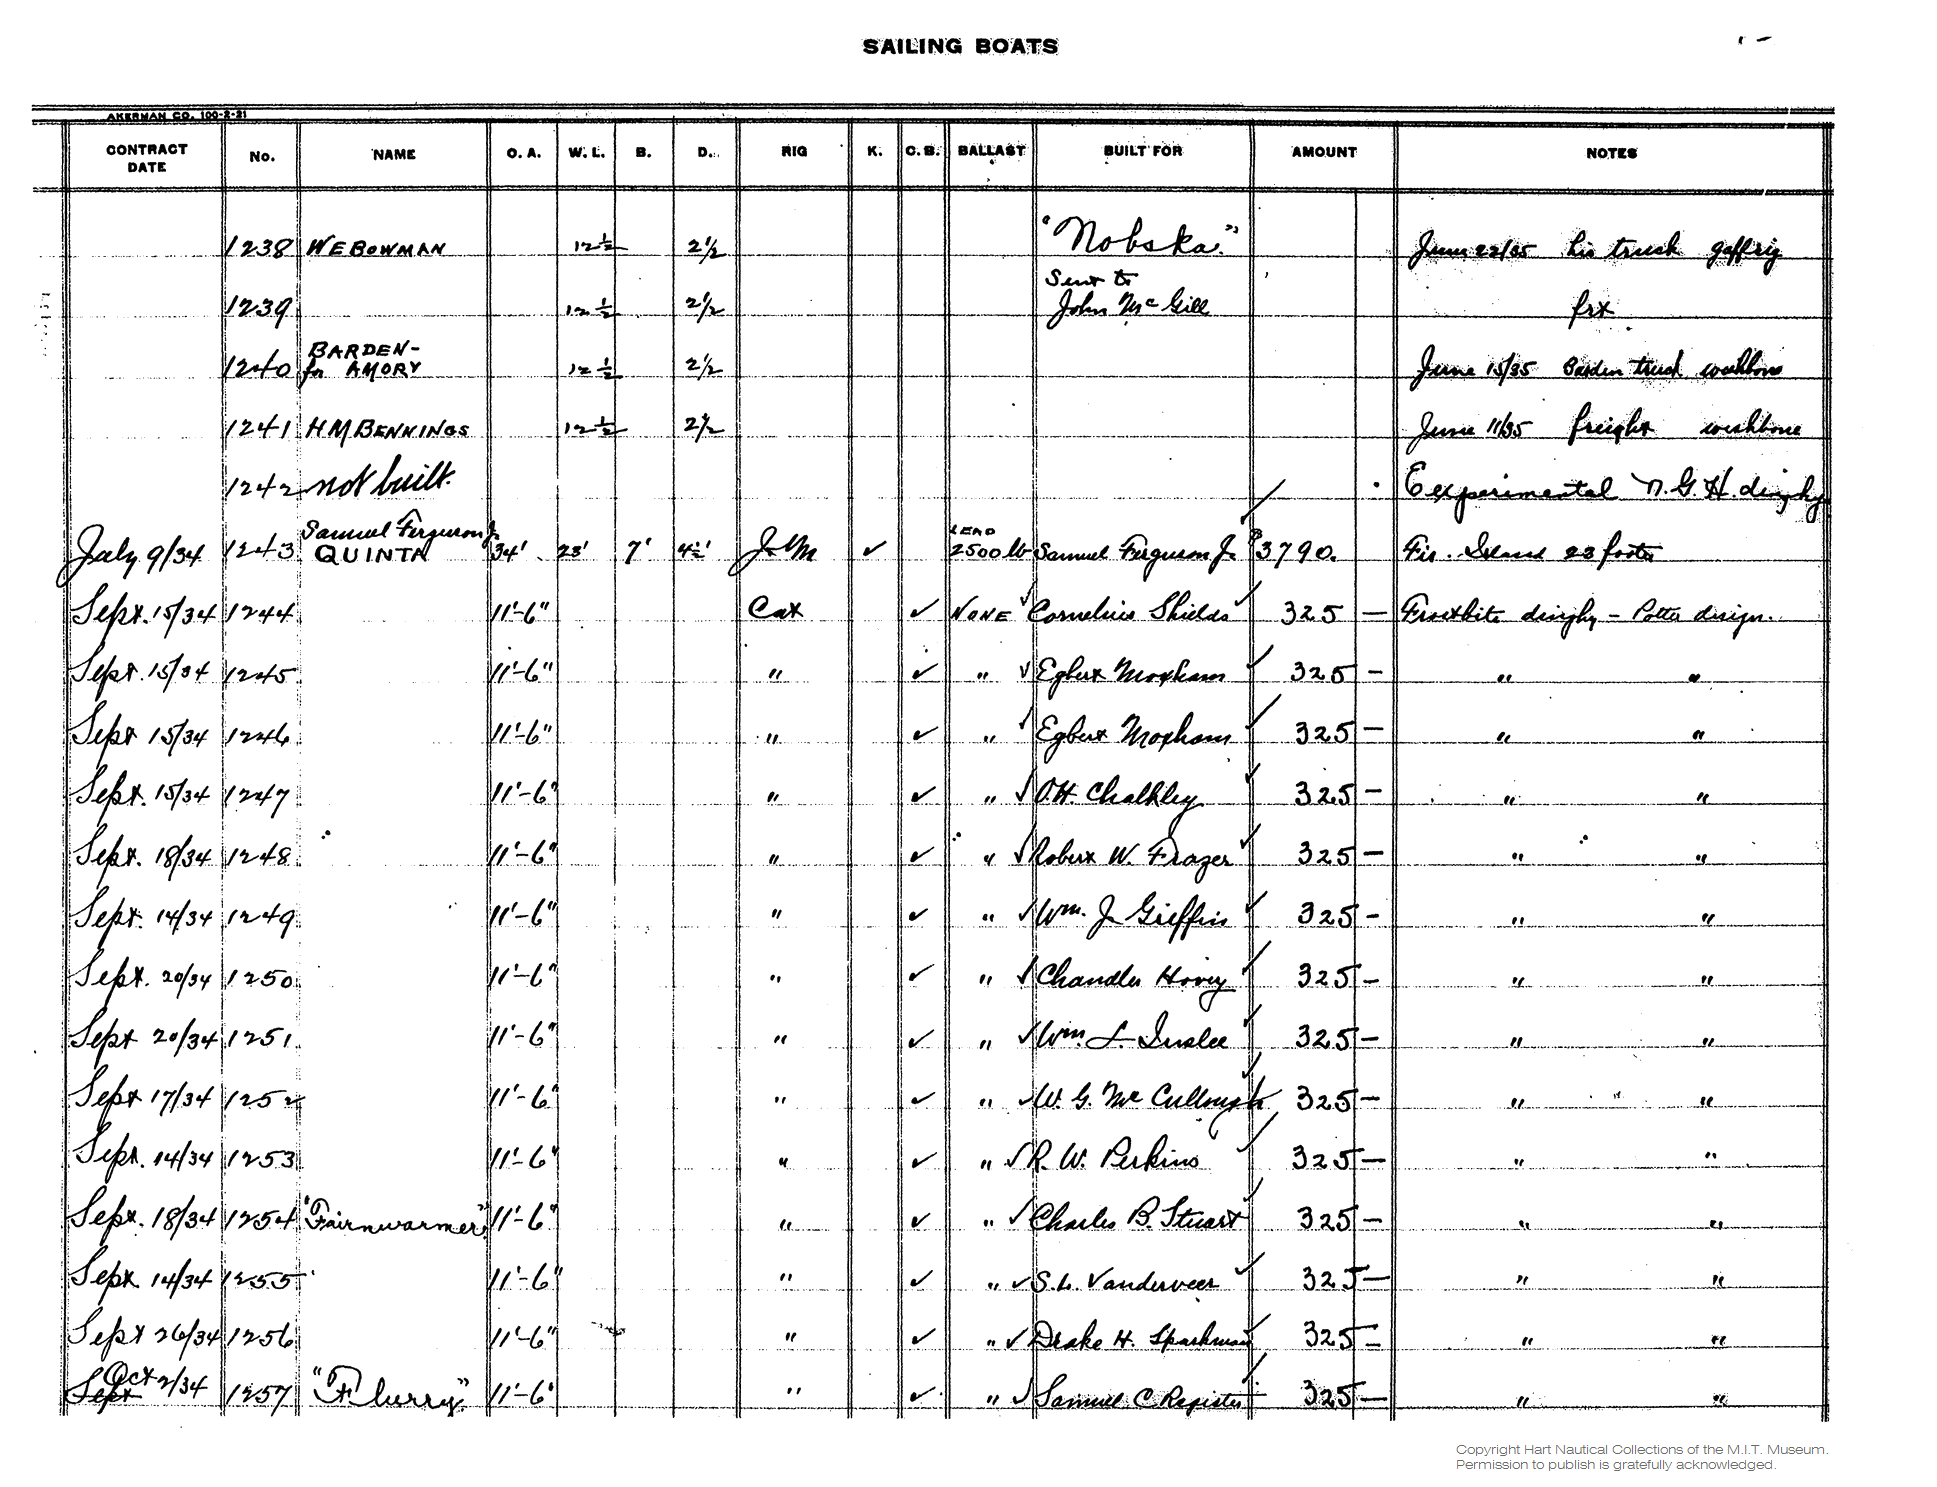 SAILING BOATS
AKERMAN CO. 100-2-21
CONTRACT DATE No. NAME O. A. W. L. B. D. RIG K. C. B. BALLAST BUILT FOR AMOUNT NOTES
1238 W E BOWMAN 12 1/2 2 1/2 "Nobska" June 22/35 his truck gaff rig
1239 12 1/2 2 1/2 Sent to John McGill frt
1240 BARDEN- for AMORY 12 1/2 2 1/2 June 15/35 Barden truck wishbone
1241 H M BENNINGS 12 1/2 2 1/2 June 11/35 freight wishbone
1242 not built. Experimental N.G.H. dinghy
July 9/34 1243 Samuel Ferguson Jr. QUINTA 34' 23' 7' 4 1/2' J & M ✓ LEAD 2500 lb Samuel Ferguson Jr. $3790. Fis. Island 23 footer
Sept. 15/34 1244 11'-6" Cat ✓ NONE ✓ Cornelius Shields ✓ 325 — Frostbite dinghy - Potter design.
Sept. 15/34 1245 11'-6" " ✓ " ✓ Egbert Moxham ✓ 325 — " "
Sept 15/34 1246 11'-6" " ✓ " ✓ Egbert Moxham ✓ 325 — " "
Sept. 15/34 1247 11'-6" " ✓ " ✓ O.H. Chalkley ✓ 325 — " "
Sept. 18/34 1248 11'-6" " ✓ " ✓ Robert W. Frazer ✓ 325 — " "
Sept. 14/34 1249 11'-6" " ✓ " ✓ Wm. J. Griffin ✓ 325 — " "
Sept. 20/34 1250 11'-6" " ✓ " ✓ Chandler Hovey ✓ 325 — " "
Sept 20/34 1251 11'-6" " ✓ " ✓ Wm. L. Inslee ✓ 325 — " "
Sept 17/34 1252 11'-6" " ✓ " ✓ W. G. McCullough ✓ 325 — " "
Sept. 14/34 1253 11'-6" " ✓ " ✓ R. W. Perkins ✓ 325 — " "
Sept. 18/34 1254 "Fairnwarmer" 11'-6" " ✓ " ✓ Charles B. Stuart ✓ 325 — " "
Sept 14/34 1255 11'-6" " ✓ " ✓ S. L. Vanderveer ✓ 325 — " "
Sept 26/34 1256 11'-6" " ✓ " ✓ Drake H. Sparkman ✓ 325 — " "
Sept Oct 2/34 1257 "Flurry" 11'-6" " ✓ " ✓ Samuel C. Register ✓ 325 — " "
Copyright Hart Nautical Collections of the M.I.T. Museum.
Permission to publish is gratefully acknowledged.